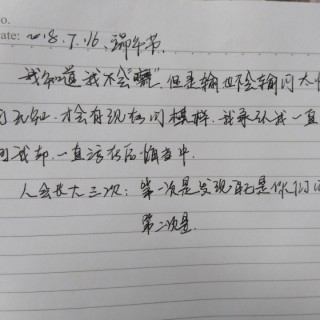 o.
ate: 2018.7.16、端午节.
我知道我不会"赢", 但是输也不会输问太
无知, 才会有现在问模样, 我承认我一直
我却, 一直活在后悔当中.
人会长大三次: 第一次是发现自己是你们
第二次是.